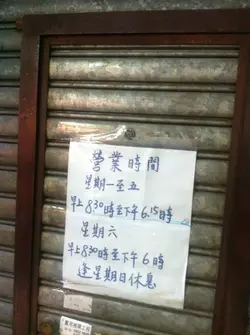 營業時間
星期一至五
早上8:30時至下午6.15時
星期六
早上8:30時至下午6時
逢星期日休息